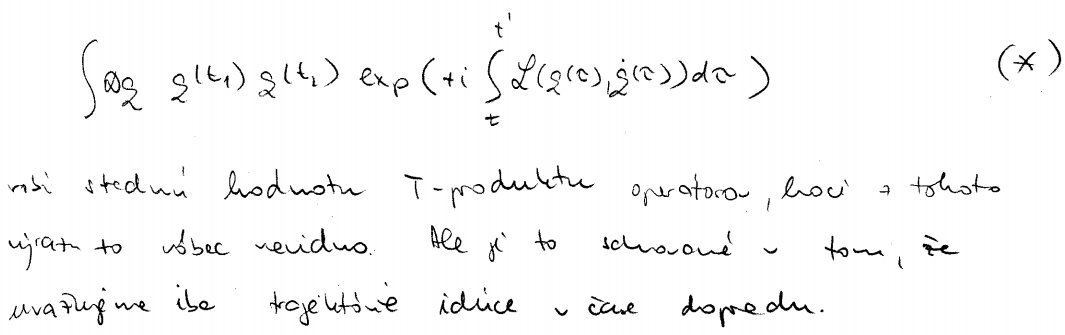 ∫ Dq q(t₁) q(t₂) exp(+i ∫ₜᵗ' ℒ(q(τ), q̇(τ))dτ) (*)
robí strednú hodnotu T-produktu operátorov, hoci z tohoto
výrazu to vôbec nevidno. Ale je to schované v tom, že
uvažujeme iba trajektórie idúce v čase dopredu.